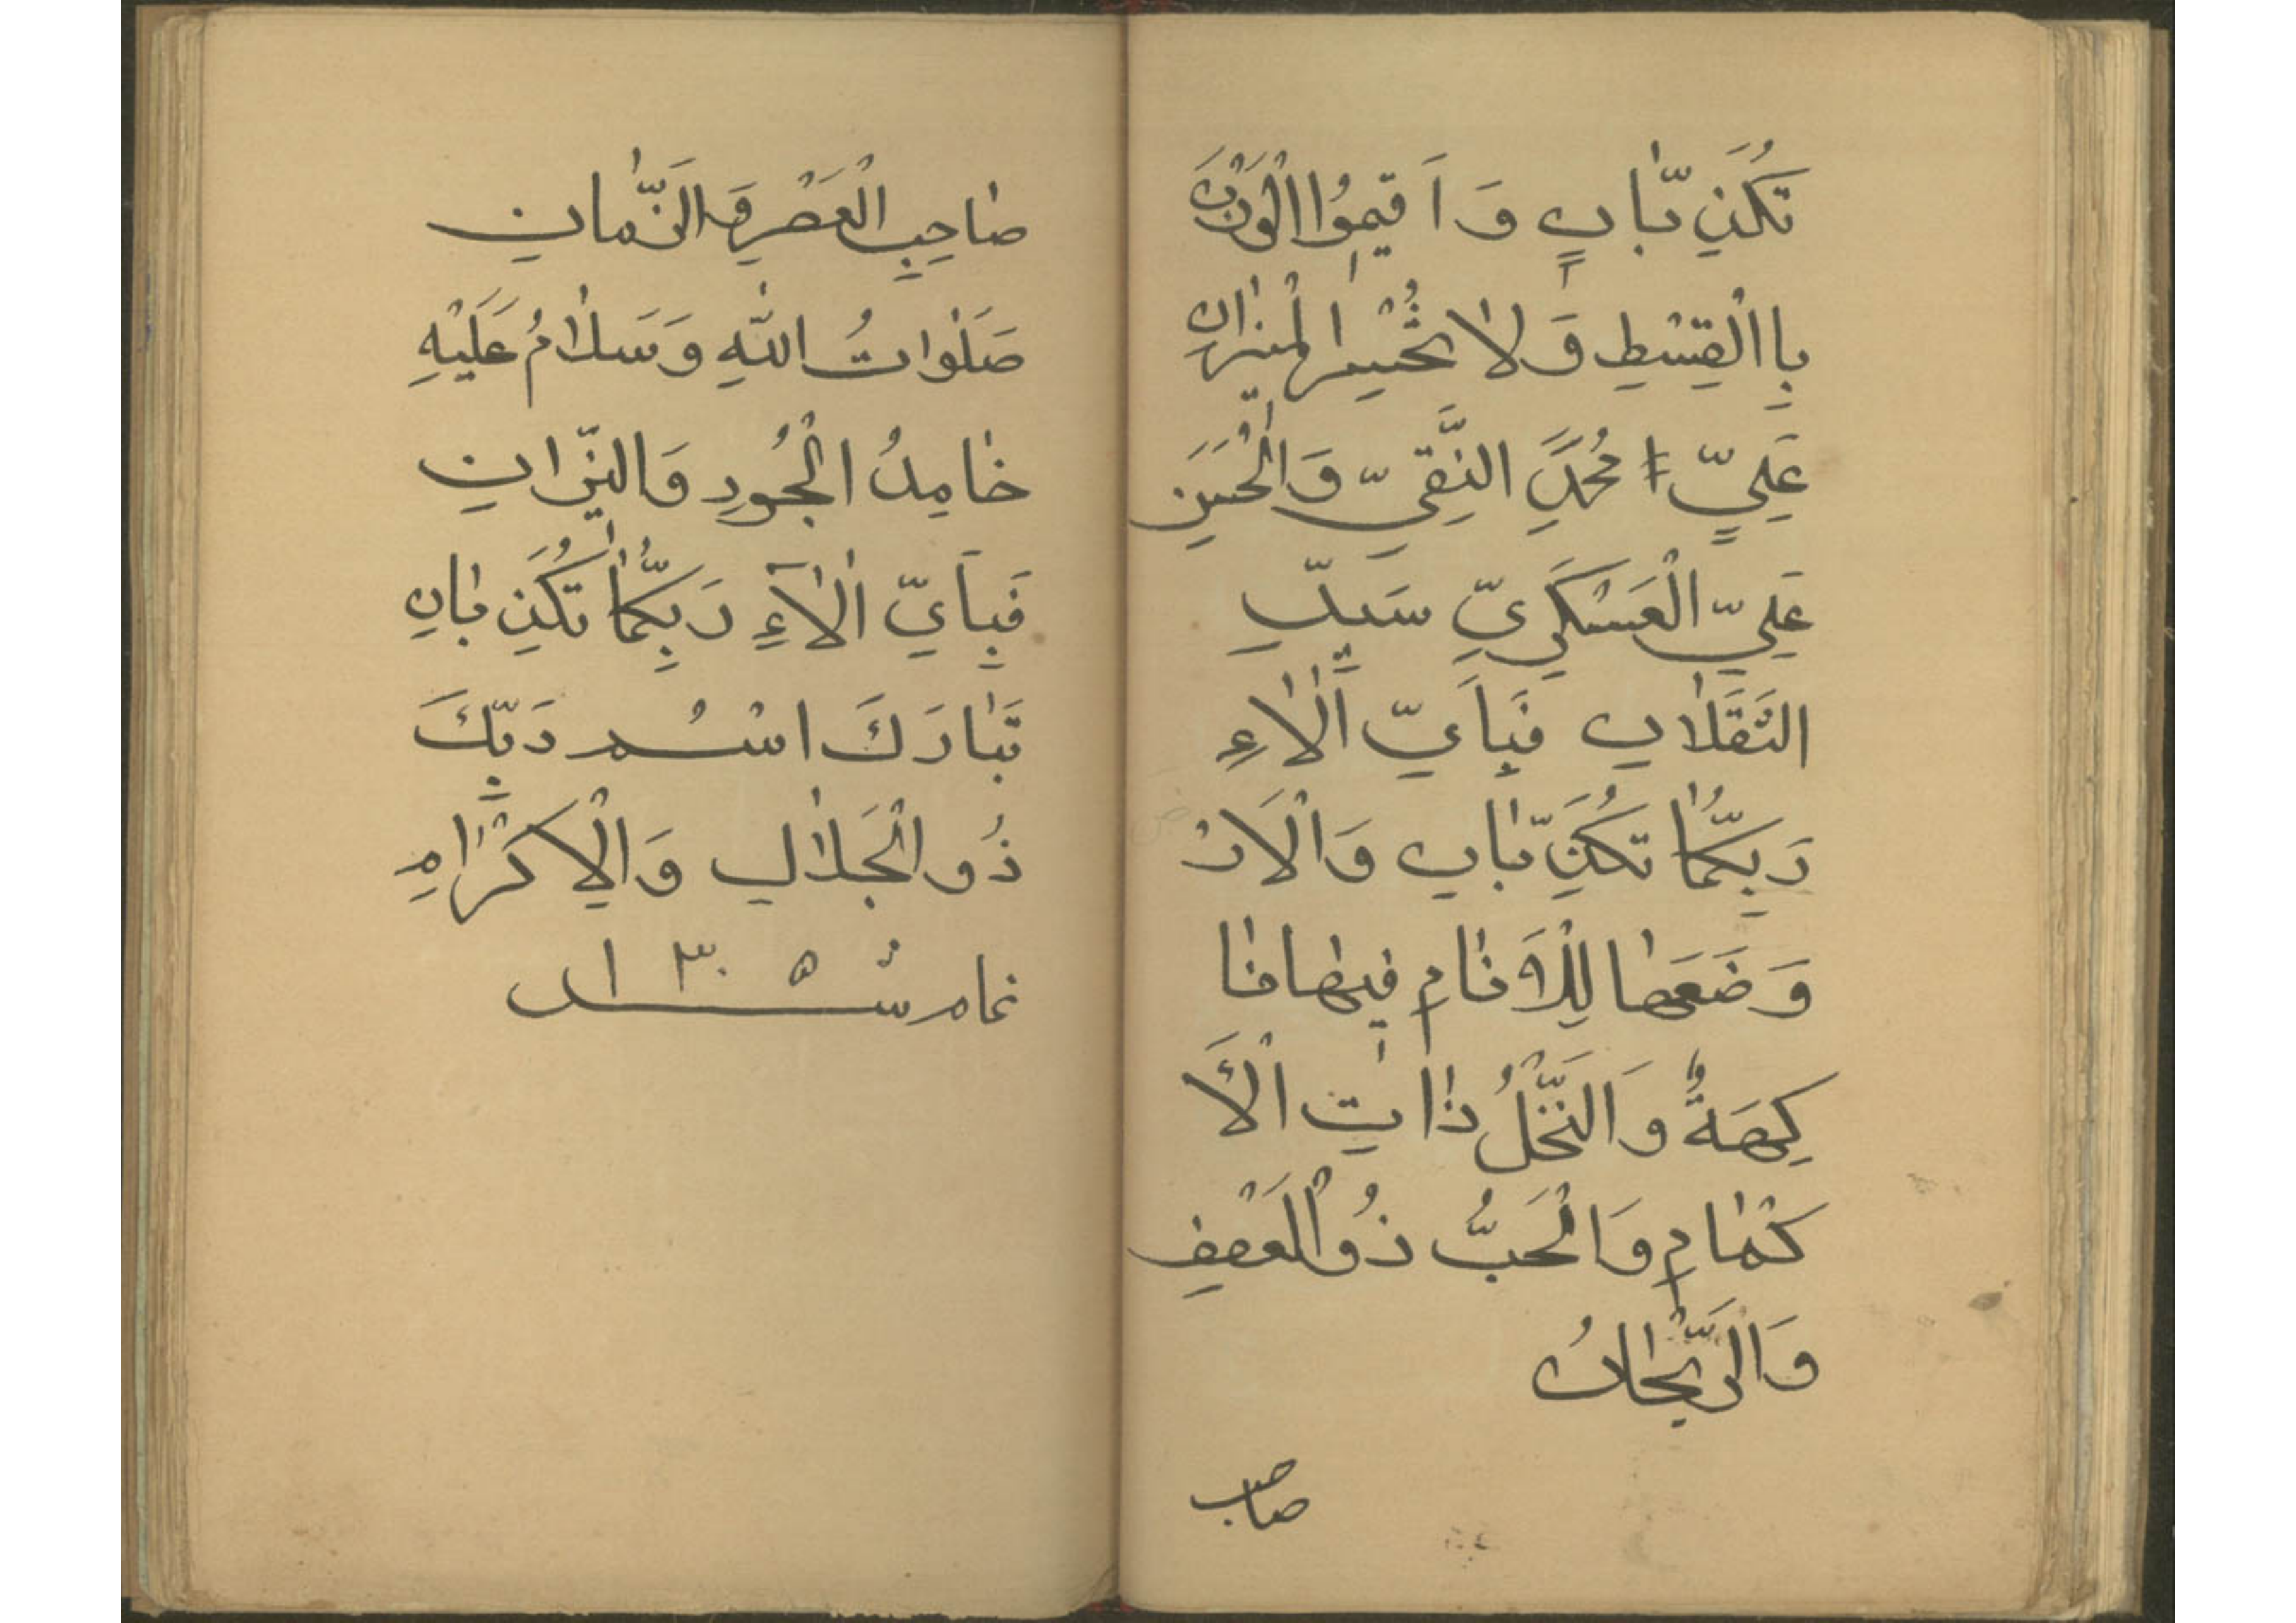 تُكَذِّبَانِ وَاَقيمُوا الْوَزْنَ
بِاالْقِسْطِ وَلاٰ تُخْسِرا لْميٖزٰانِ
عَلِيٍّ مُحَمَّدٍ النَّقِيِّ وَالْحُسَيَنِ
عَلِيِّ الْعَسْكَرِيِّ سَيِّدِ
الثَقَلاٰنِ فَبِاَيِّ اٰلاٰءِ
رَبِّكُمٰا تُكَذِّبٰانِ وَالْاَرْ
وَضَعَهٰا لِلْاَنٰامِ فيٖهٰا فٰا
كِهَةٌ وَالنَّخْلُ ذٰاتِ الْاَ
كْمٰامِ وَالْحَبُّ ذُوالْعَصْفِ
وَالرَّيْحٰانُ
صاحب
صٰاحِبِ الْعَصْرِ وَالزَّمٰانِ
صَلَوٰاتُ اللّٰهِ وَسَلاٰمُ عَلَيْهِ
خٰامِدُ الْجُودِ وَالنّيرٰانِ
فَبِاَيِّ اٰلاٰءِ رَبِّكُمٰا تُكَذِبٰانِ
تَبٰارَكَ اسْمُ رَبِّكَ
ذُو الْجَلاٰلِ وَالْاِكْرٰامِ
تمام شُد ۱۳۰۵